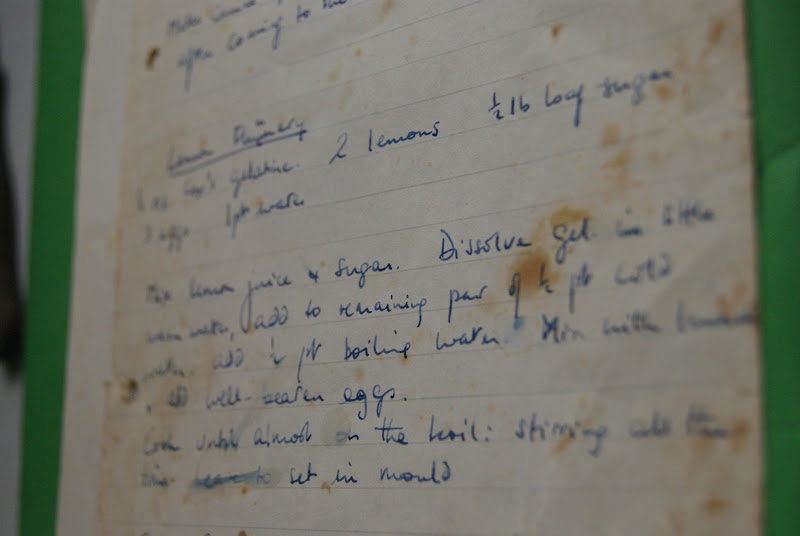 Make
after coming to the
Lemon Flummery
½ oz Cox's gelatine. 2 lemons ½ lb loaf sugar
3 eggs 1pt water
Mix lemon juice & sugar. Dissolve gel. in little
warm water, add to remaining part of ½ pt cold
water. add ½ pt boiling water. Mix with lemon
, add well-beaten eggs.
Cook until almost on the boil: stirring all the
time to set in mould